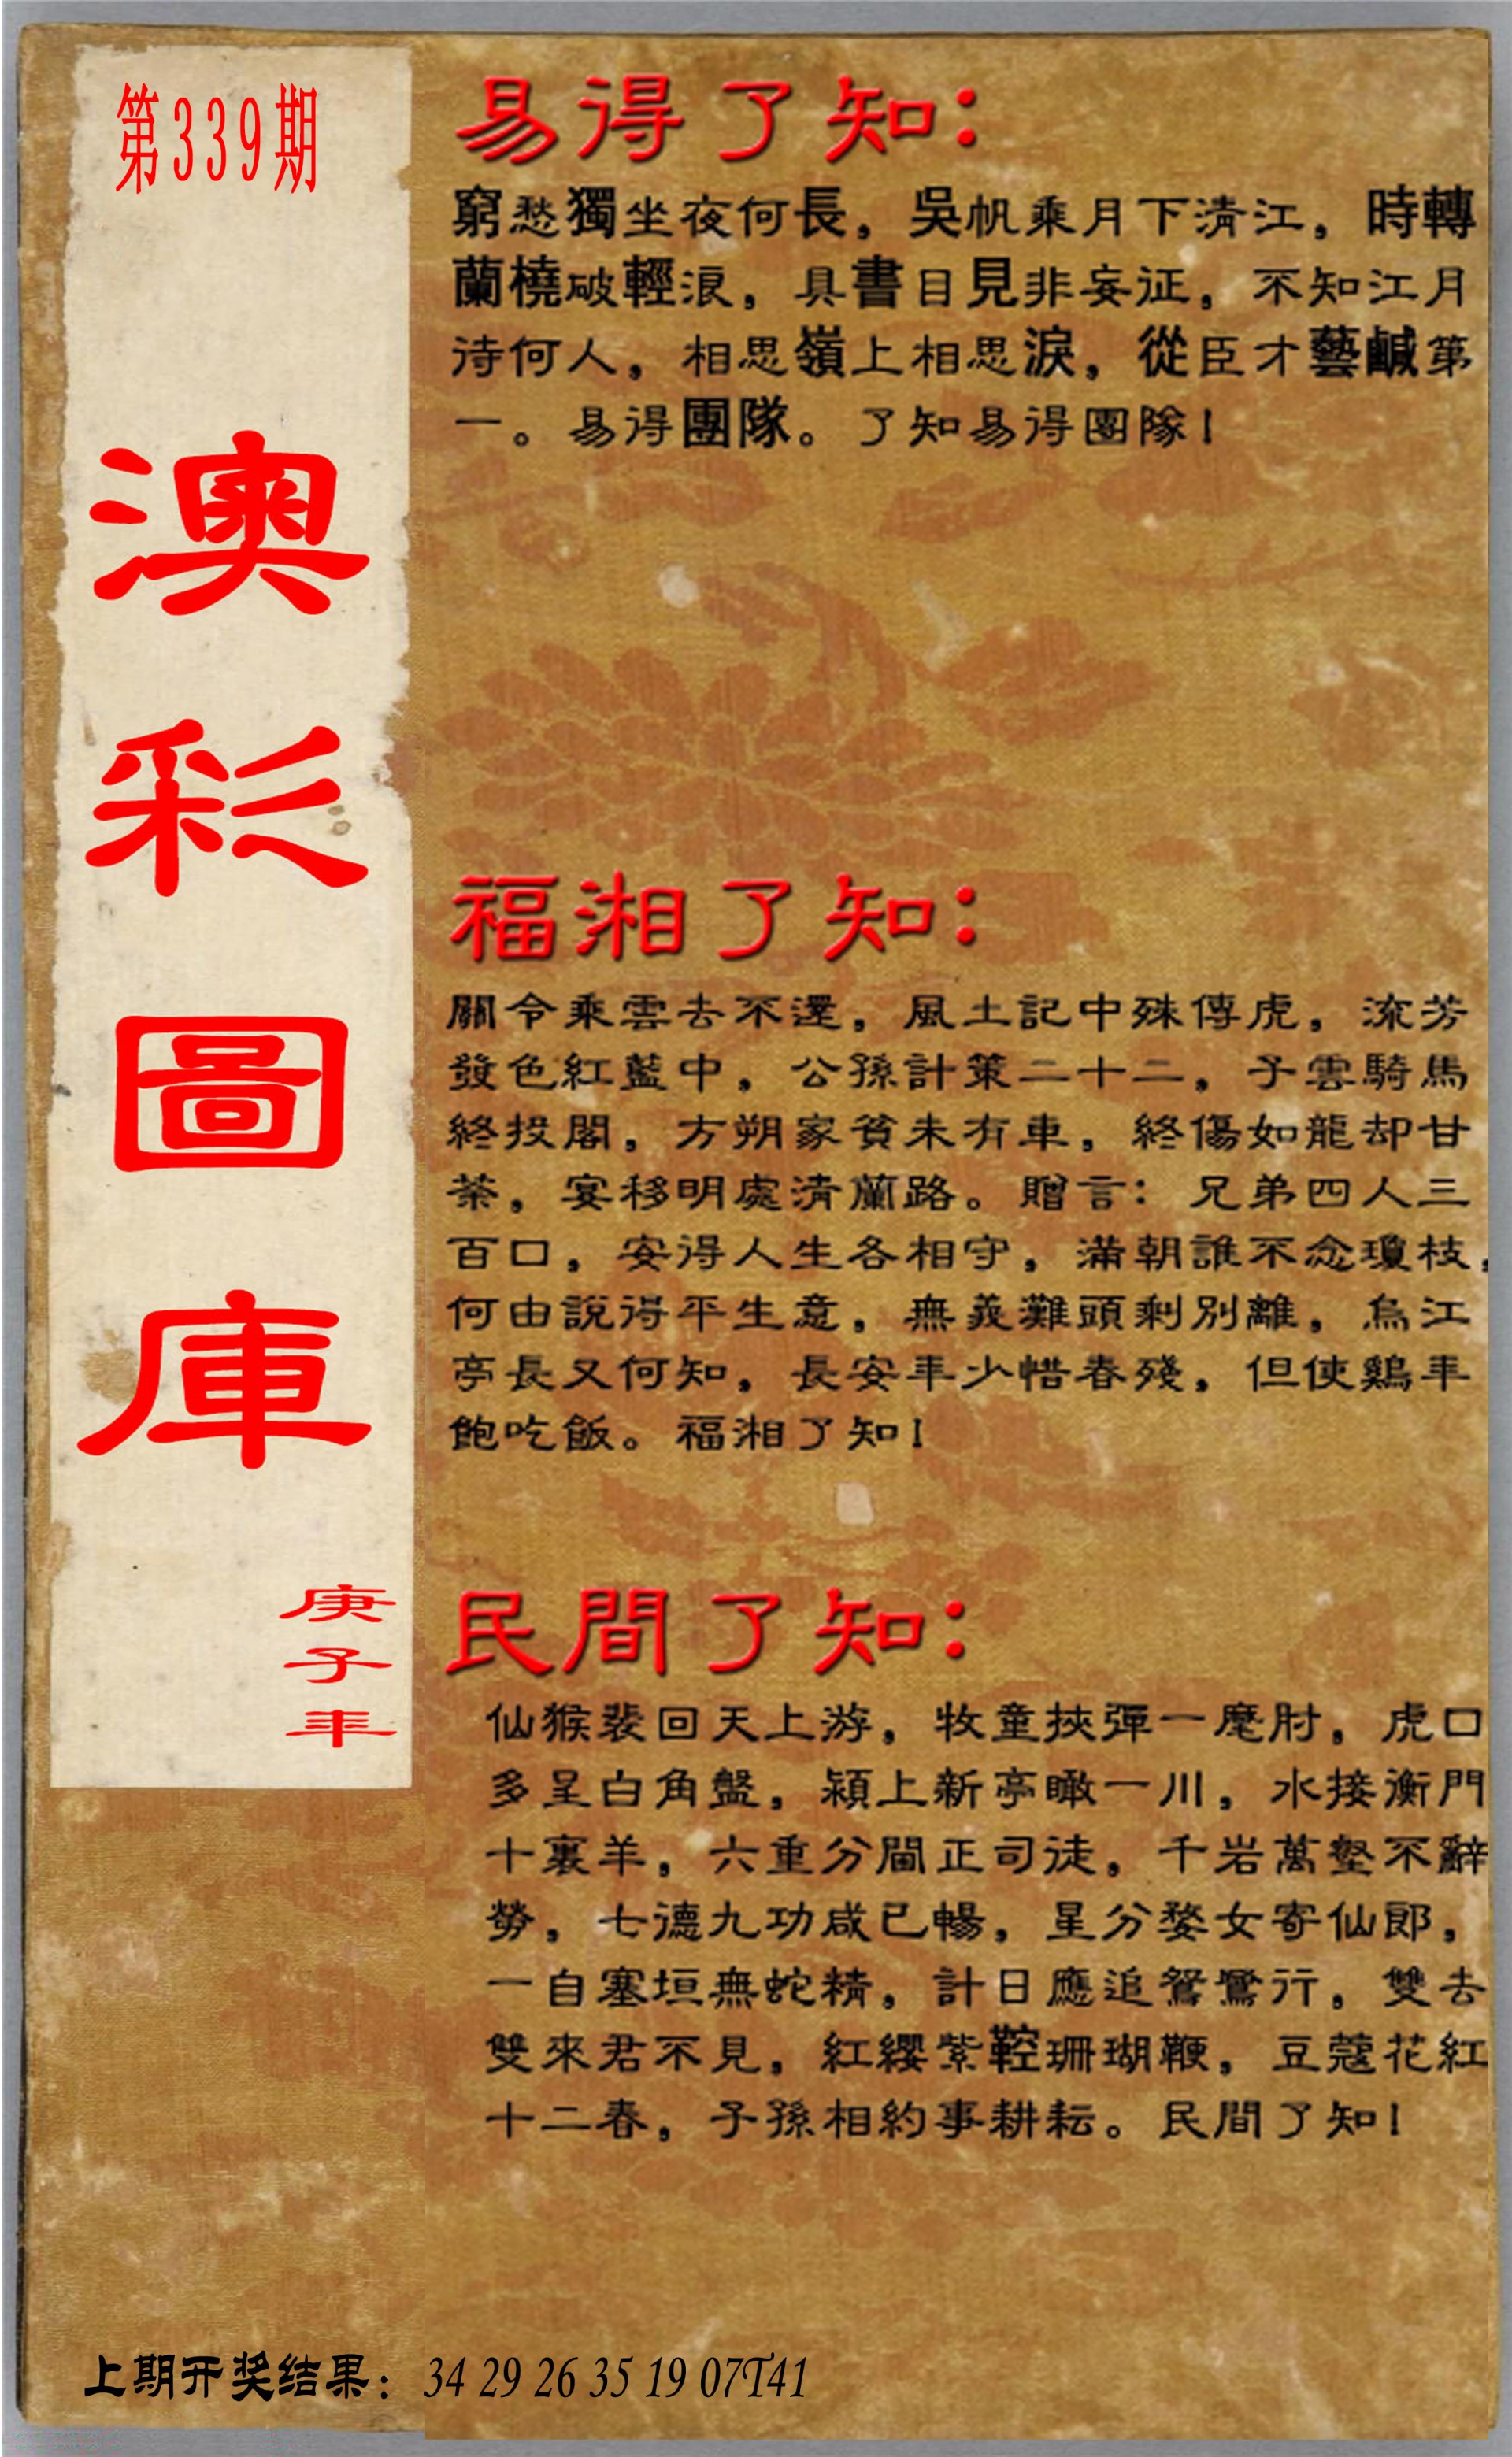 第339期
澳彩圖庫
庚子年
易得了知：
窮愁獨坐夜何長，吳帆乘月下清江，時轉
蘭橈破輕浪，具書目見非妄证，不知江月
待何人，相思嶺上相思淚，從臣才藝鹹第
一。易得團隊。了知易得團隊！
福湘了知：
關令乘雲去不還，風土記中殊傳虎，流芳
發色紅藍中，公孫計策二十二，子雲騎馬
終投閣，方朔家貧未有車，終傷如龍却甘
荼，宴移明處清蘭路。贈言：兄弟四人三
百口，安得人生各相守，滿朝誰不念瓊枝，
何由說得平生意，無義灘頭剩別離，烏江
亭長又何知，長安年少惜春殘，但使鷄年
飽吃飯。福湘了知！
民間了知：
仙猴裴回天上游，牧童挾彈一麾肘，虎口
多呈白角盤，潁上新亭瞰一川，水接衡門
十裏羊，六重分閫正司徒，千岩萬壑不辭
勞，七德九功咸已暢，星分婺女寄仙郎，
一自塞垣無蛇精，計日應追鴛鷺行，雙去
雙來君不見，紅纓紫鞚珊瑚鞭，豆蔻花紅
十二春，子孫相約事耕耘。民間了知！
上期开奖结果：34 29 26 35 19 07T41